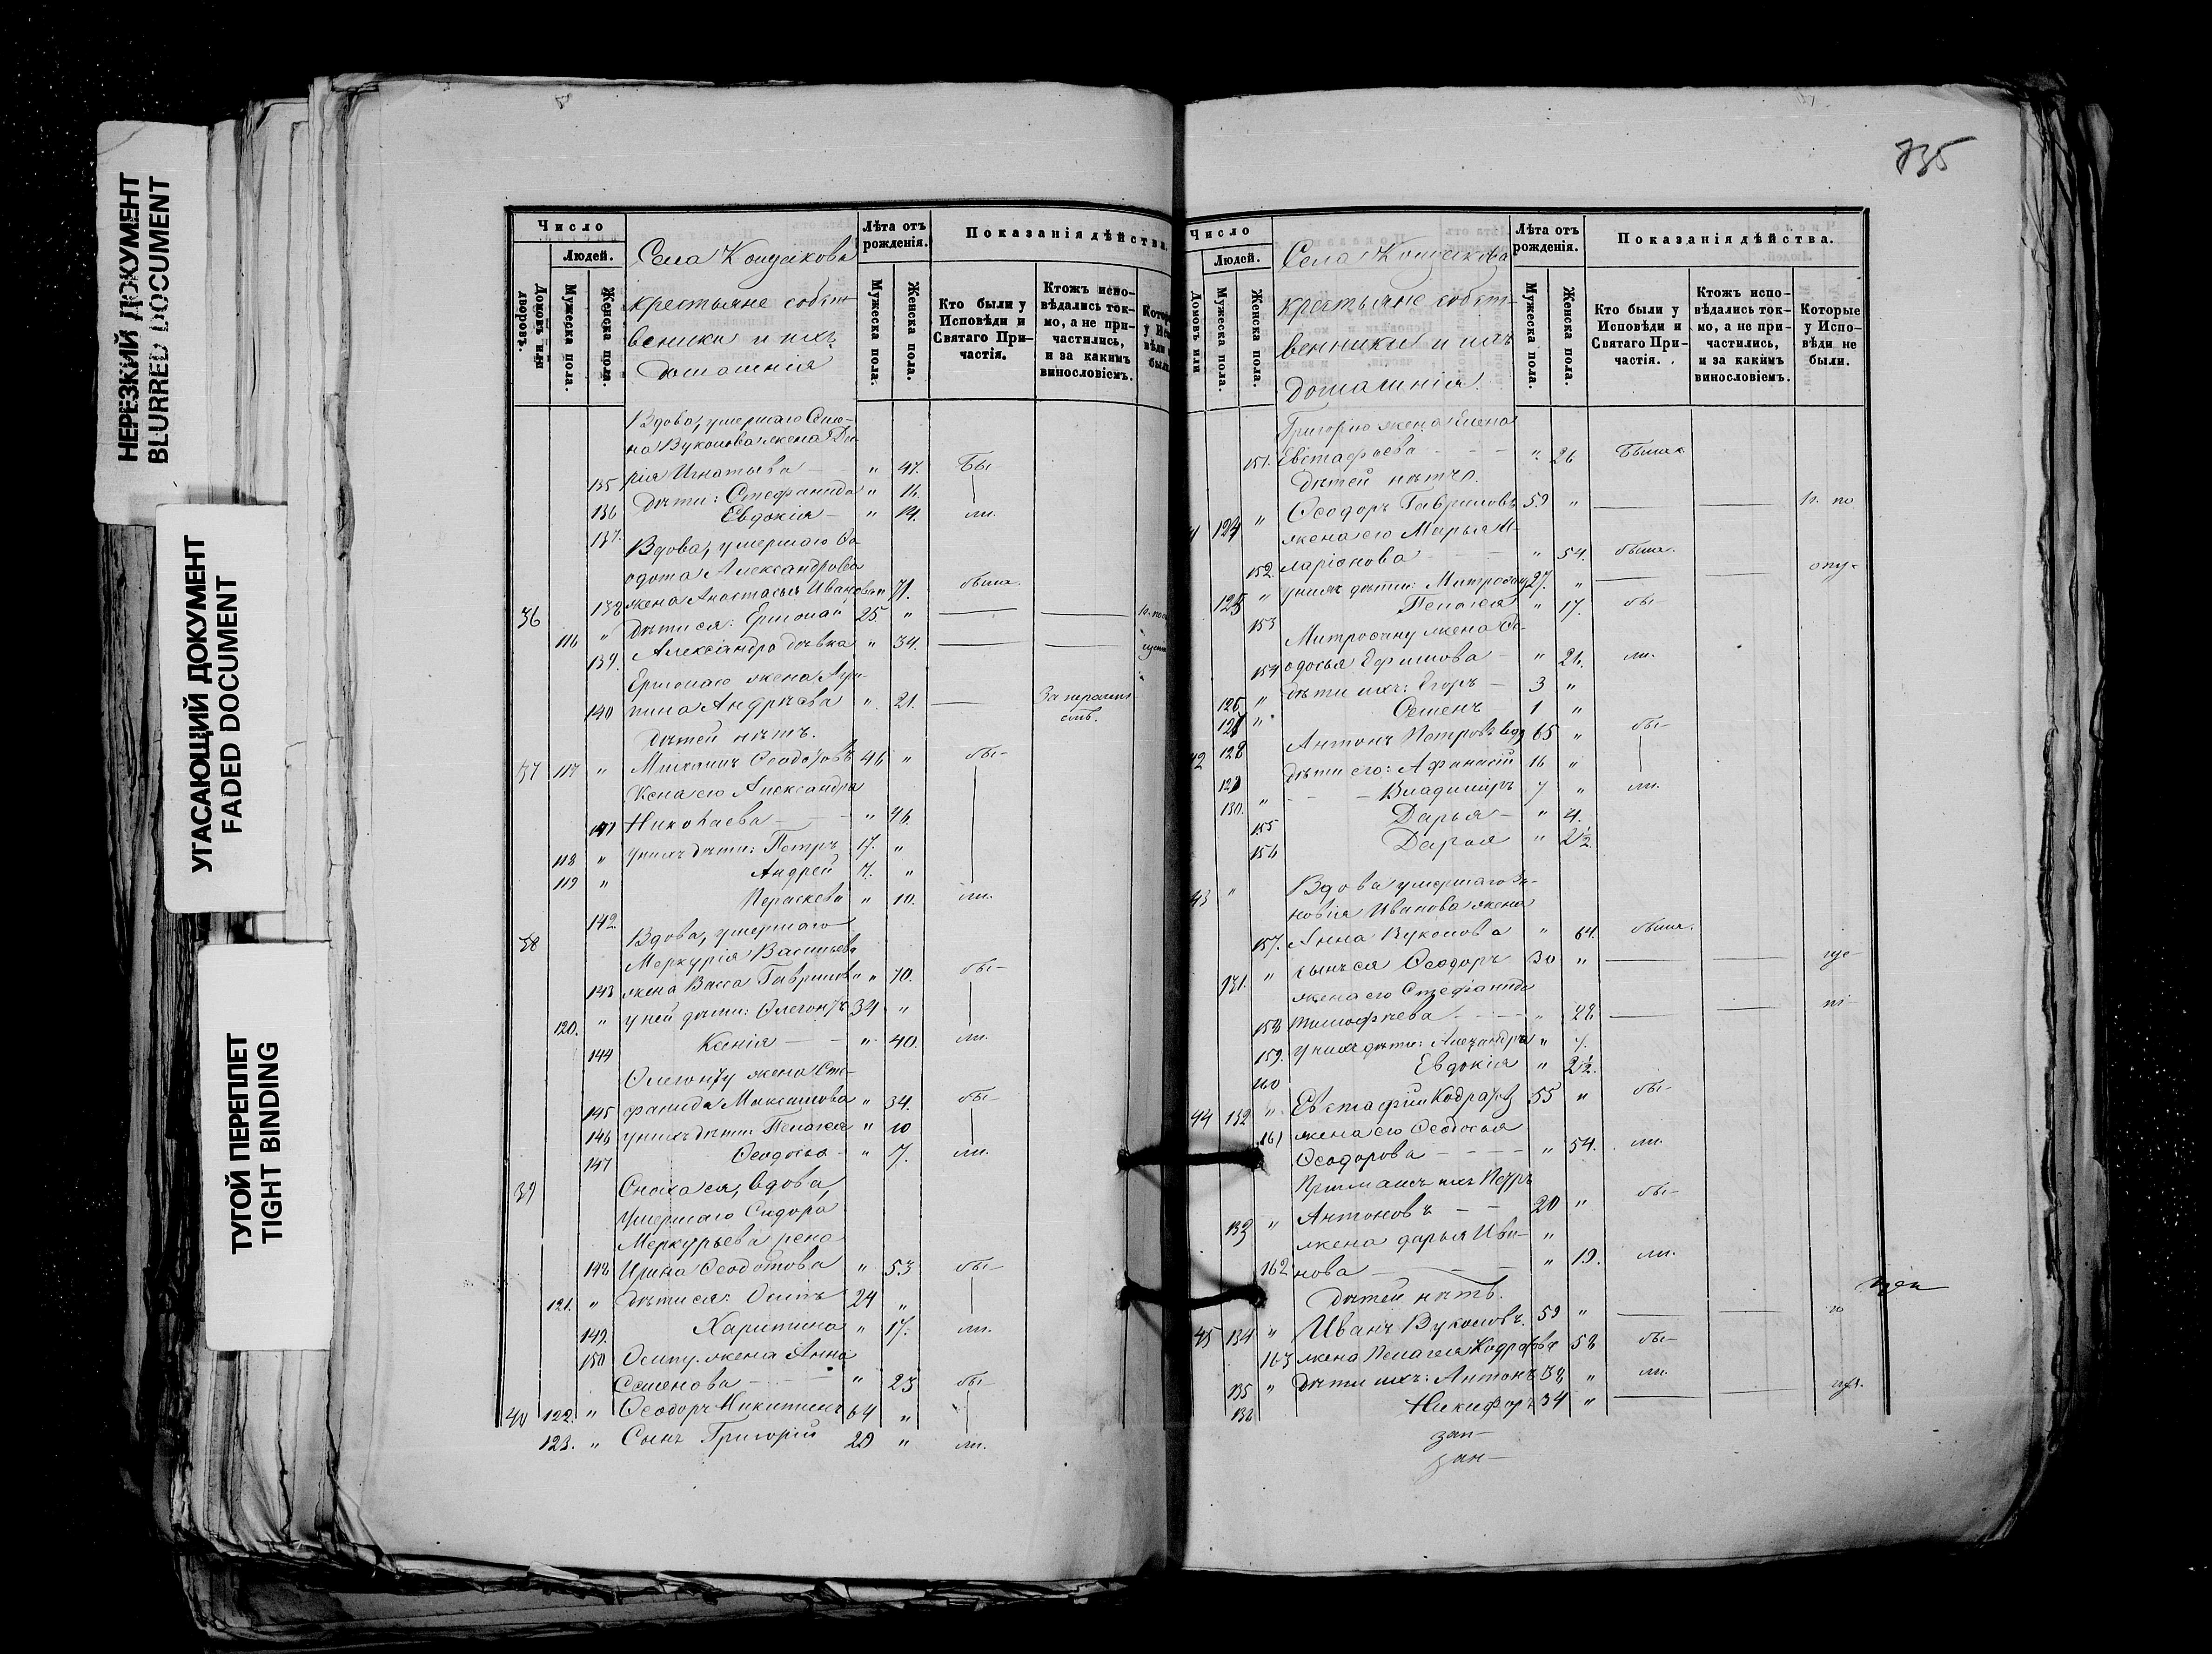 НЕРЕЗКИЙ ДОКУМЕНТ
BLURRED DOCUMENT
УГАСАЮЩИЙ ДОКУМЕНТ
FADED DOCUMENT
ТУГОЙ ПЕРЕПЛЕТ
TIGHT BINDING
Число
Людей.
Домовъ или дворовъ.
Мужеска пола.
Женска пола.
Села
крестьяне собст-
венники и ихъ
домашнія
Лѣта отъ рожденія.
Мужеска пола.
Женска пола.
Показанія дѣйства.
Кто были у Исповѣди и Святаго Причастія.
Ктожъ испо-
вѣдались ток-
мо, а не при-
частились,
и за какимъ
винословіемъ.
Вдова, умершаго
на Вуколова жена
135 рія Игнатьева " 47. Бы
136 дѣти: Стефанида " 16.
137. Евдокія " 14. ли.
Вдова, умершаго Ѳе
одота Александрова
36 138 жена Анастасья Иванова " 71. была.
116 " дѣти ея: Ермолай 25 "
139. Александра дѣвка " 34.
Ермолаю жена
140 Андреева " 21.
дѣтей нѣтъ.
37 117 " Михаилъ Ѳеодотовъ 46 " бы-
Жена его Александра
141 Николаева " 46
118 " у нихъ дѣти: Петръ 17. "
119 " Андрей 7. "
142 Параскева " 10. ли.
38 Вдова, умершаго
Меркурія Васильева
143 жена Васса Гаврилова " 70. бы-
120. " у ней дѣти: 34 "
144 Ксенія " 40. ли.
жена Сте-
145 фанида Максимова " 34. бы-
146 у нихъ дѣти: Пелагея " 10
147 Ѳеодосья " 7. ли.
39 Сноха ея, вдова,
умершаго Сидора
Меркурьева жена
148 Ирина Ѳеодотова " 53 бы-
121. " дѣти ея: Осипъ 24 "
149. Харитина " 17. ли.
150 Осипу жена Анна
Семенова " 23 бы-
40 122. " Ѳеодоръ Никитинъ 64 "
123. " Сынъ Григорій 20 " ли.
735
Число
Людей.
Домовъ или
Мужеска пола.
Женска пола.
Села
крестьяне собст-
венники и ихъ
домашнія.
Лѣта отъ рожденія.
Мужеска пола.
Женска пола.
Показанія дѣйства.
Кто были у Исповѣди и Святаго Причастія.
Ктожъ испо-
вѣдались ток-
мо, а не при-
частились,
и за какимъ
винословіемъ.
Которые у Испо-
вѣди не были.
Григорію жена Елена
151. Евстафьева " 26 Была
Дѣтей нѣтъ.
124 " Ѳеодоръ Гавриловъ 59 " по
жена его Марья И-
152. ларіонова " 54. была.
125 " у нихъ дѣти: Митрофанъ 27. "
153 Пелагея " 17. бы-
Митрофану жена Ѳе-
154 одосья Ефимова " 26. ли.
126 " дѣти ихъ: Егоръ 3 "
127 " Семенъ 1 "
42 128 Антонъ Петровъ вдов 65 " бы-
129 дѣти его: Афанасій 16 "
130. " Владиміръ 7 " ли.
155 Дарья " 4.
156 Дарья " 2½
43 " Вдова умершаго Зи-
новія Иванова жена
157. Анна Вуколова " 64. была.
131. " сынъ ея Ѳеодоръ 30 "
жена его Стефанида
158 Тимофѣева " 28
159. у нихъ дѣти: Александра " 7.
160 Евдокія " 2½.
44 132 " Евстафій 55 " бы-
161 жена его Ѳеодосья
Ѳеодорова " 54. ли.
ихъ Петръ
133 " Антоновъ 20 " бы-
жена дарья Ива- "
162 нова " 19. ли.
Дѣтей нѣтъ.
45 134 " Иванъ Вуколовъ. 59 "
163 жена Пелагея 58 бы-
135 " Дѣти ихъ: Антонъ 38 " ли.
136 Никифоръ 34 "